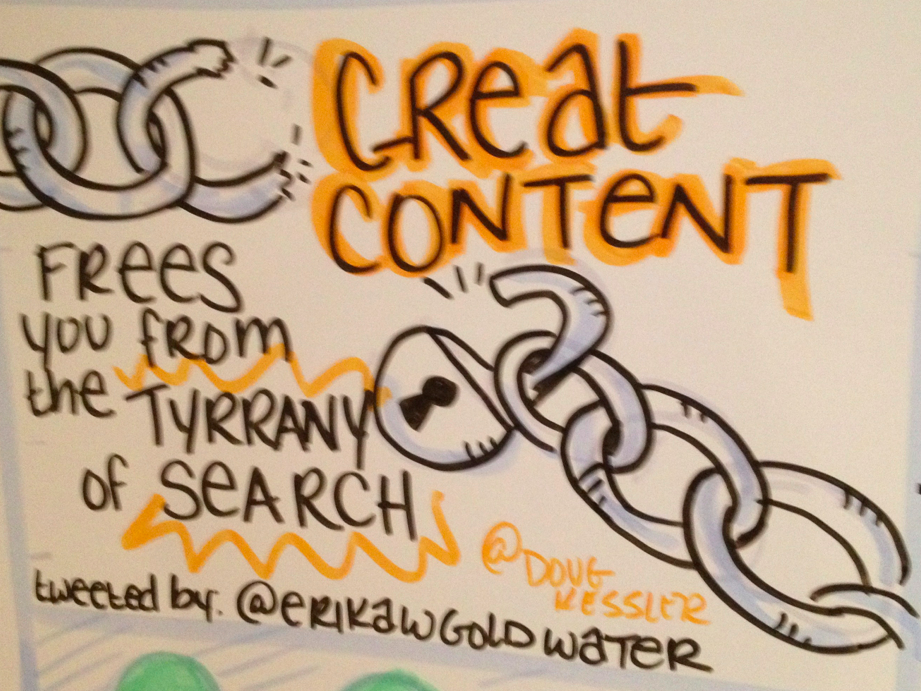 GREAT
CONTENT
FREES
YOU from
the TYRRANY
of SEARCH
@DOUG
KESSLER
tweeted by: @ERIKAWGOLDWATER